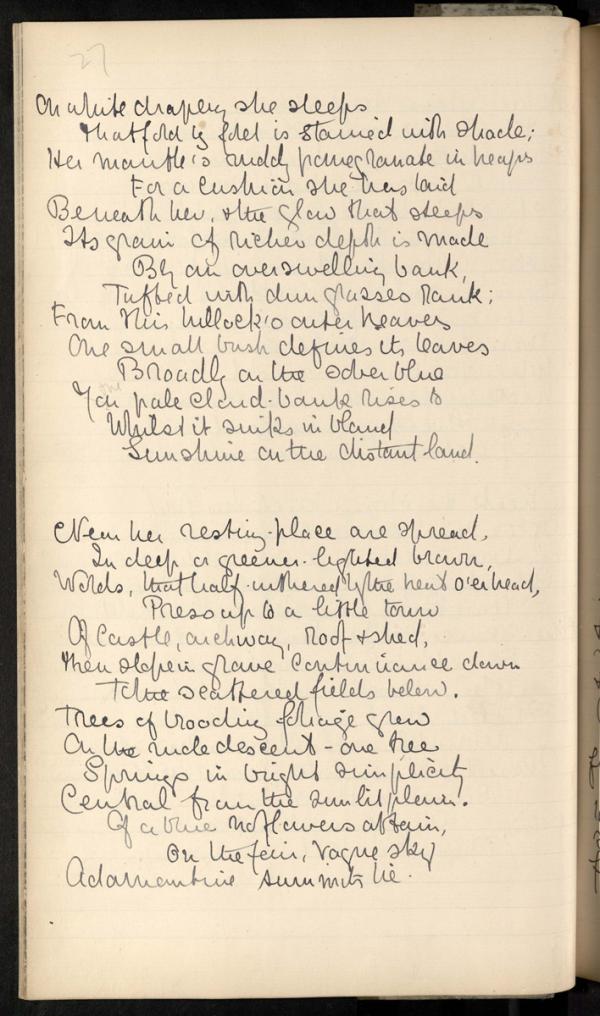 27
On white drapery she sleeps
That fold by fold is stained with shade;
Her mantle's ruddy pomegranate in heaps
For a cushion she has laid
Beneath her, & the glow that steeps
Its grain of richer depth is made
By an overswelling bank,
Tufted with dun grasses rank;
From this hillock's outer heaves
One small bush defines its leaves
Broadly on the sober blue
Yon pale cloud-bank rises to
Whilst it sinks in bland
Sunshine on the distant land.
Near her resting-place are spread,
In deep or greener-lighted brown,
Wolds, that half-withered by the heat o'er head,
Press up to a little town
Of castle, archway, roof & shed,
Then slope in grave continuance down
To the scattered fields below.
Trees of brooding foliage grow
On the rude descent - one tree
Springs in bright simplicity
Central from the sunlit plain.
Of a blue no flowers attain,
On the fair, vague sky
Adamantine summits lie.